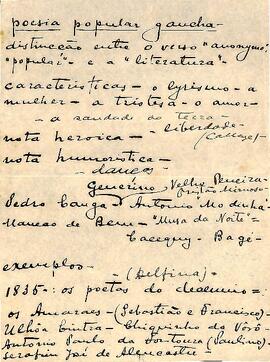 poesia popular gaucha-
distincção entre o verso "anonymo"
"popular" - e a "literatura" -
caracteristicas - o lyrismo - a
mulher - a tristesa - o amor -
a saudade da terra -
liberdade -
nota heroica -
nota humoristica -
danças
Generino Velho Pereira -
Pedro Canga Antonio Modinha
Maneco de Bem - "Musa da Noite" -
Cacequy - Bagé
exemplos - (Delfina) -
1835 - : os poetas do decennio =
os Amaraes - (Sebastião e Francisco) -
Ulhôa Cintra - Chiquinho da Vovô -
Antonio Paulo da Fontoura (Paulino)
Serafim José de Alencastre